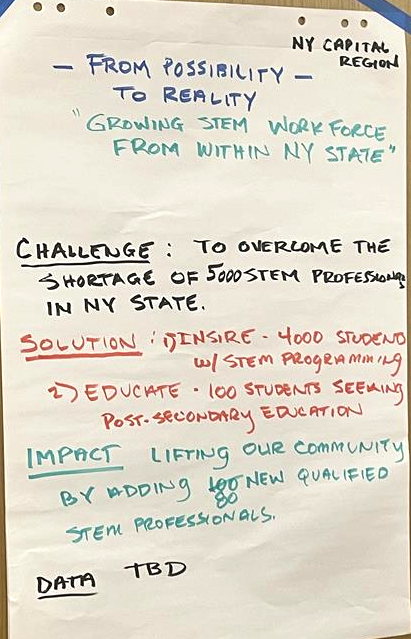 NY CAPITAL
REGION
- FROM POSSIBILITY -
TO REALITY
"GROWING STEM WORKFORCE
FROM WITHIN NY STATE"
CHALLENGE: TO OVERCOME THE
SHORTAGE OF 5000 STEM PROFESSIONALS
IN NY STATE.
SOLUTION: 1) INSIRE - 4000 STUDENTS
W/ STEM PROGRAMMING
2) EDUCATE - 100 STUDENTS SEEKING
POST-SECONDARY EDUCATION
IMPACT LIFTING OUR COMMUNITY
BY ADDING 100 NEW QUALIFIED
80
STEM PROFESSIONALS.
DATA TBD